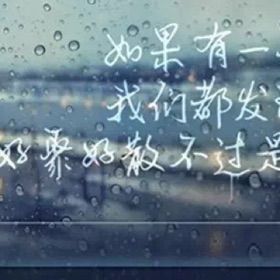 如果有一
我们都发
好聚好散不过是